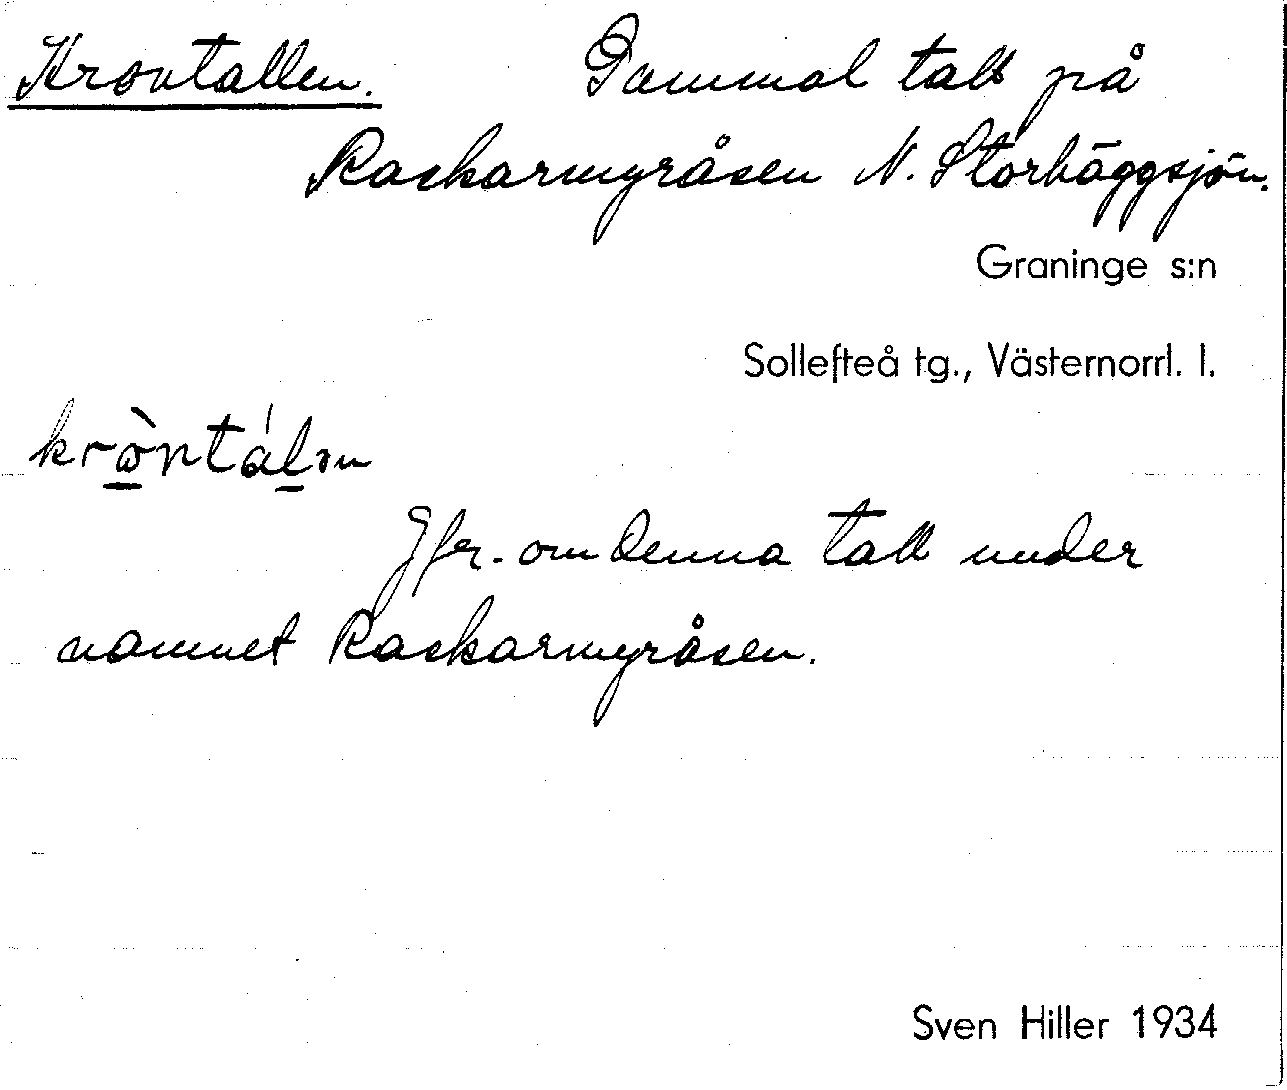 Krontallen. Gammal tall på
Rackarmyråsen N. Storhäggsjön.
Graninge s:n
Sollefteå tg., Västernorrl. l.
Jfr. om denna tall under
namnet Rackarmyråsen.
Sven Hiller 1934